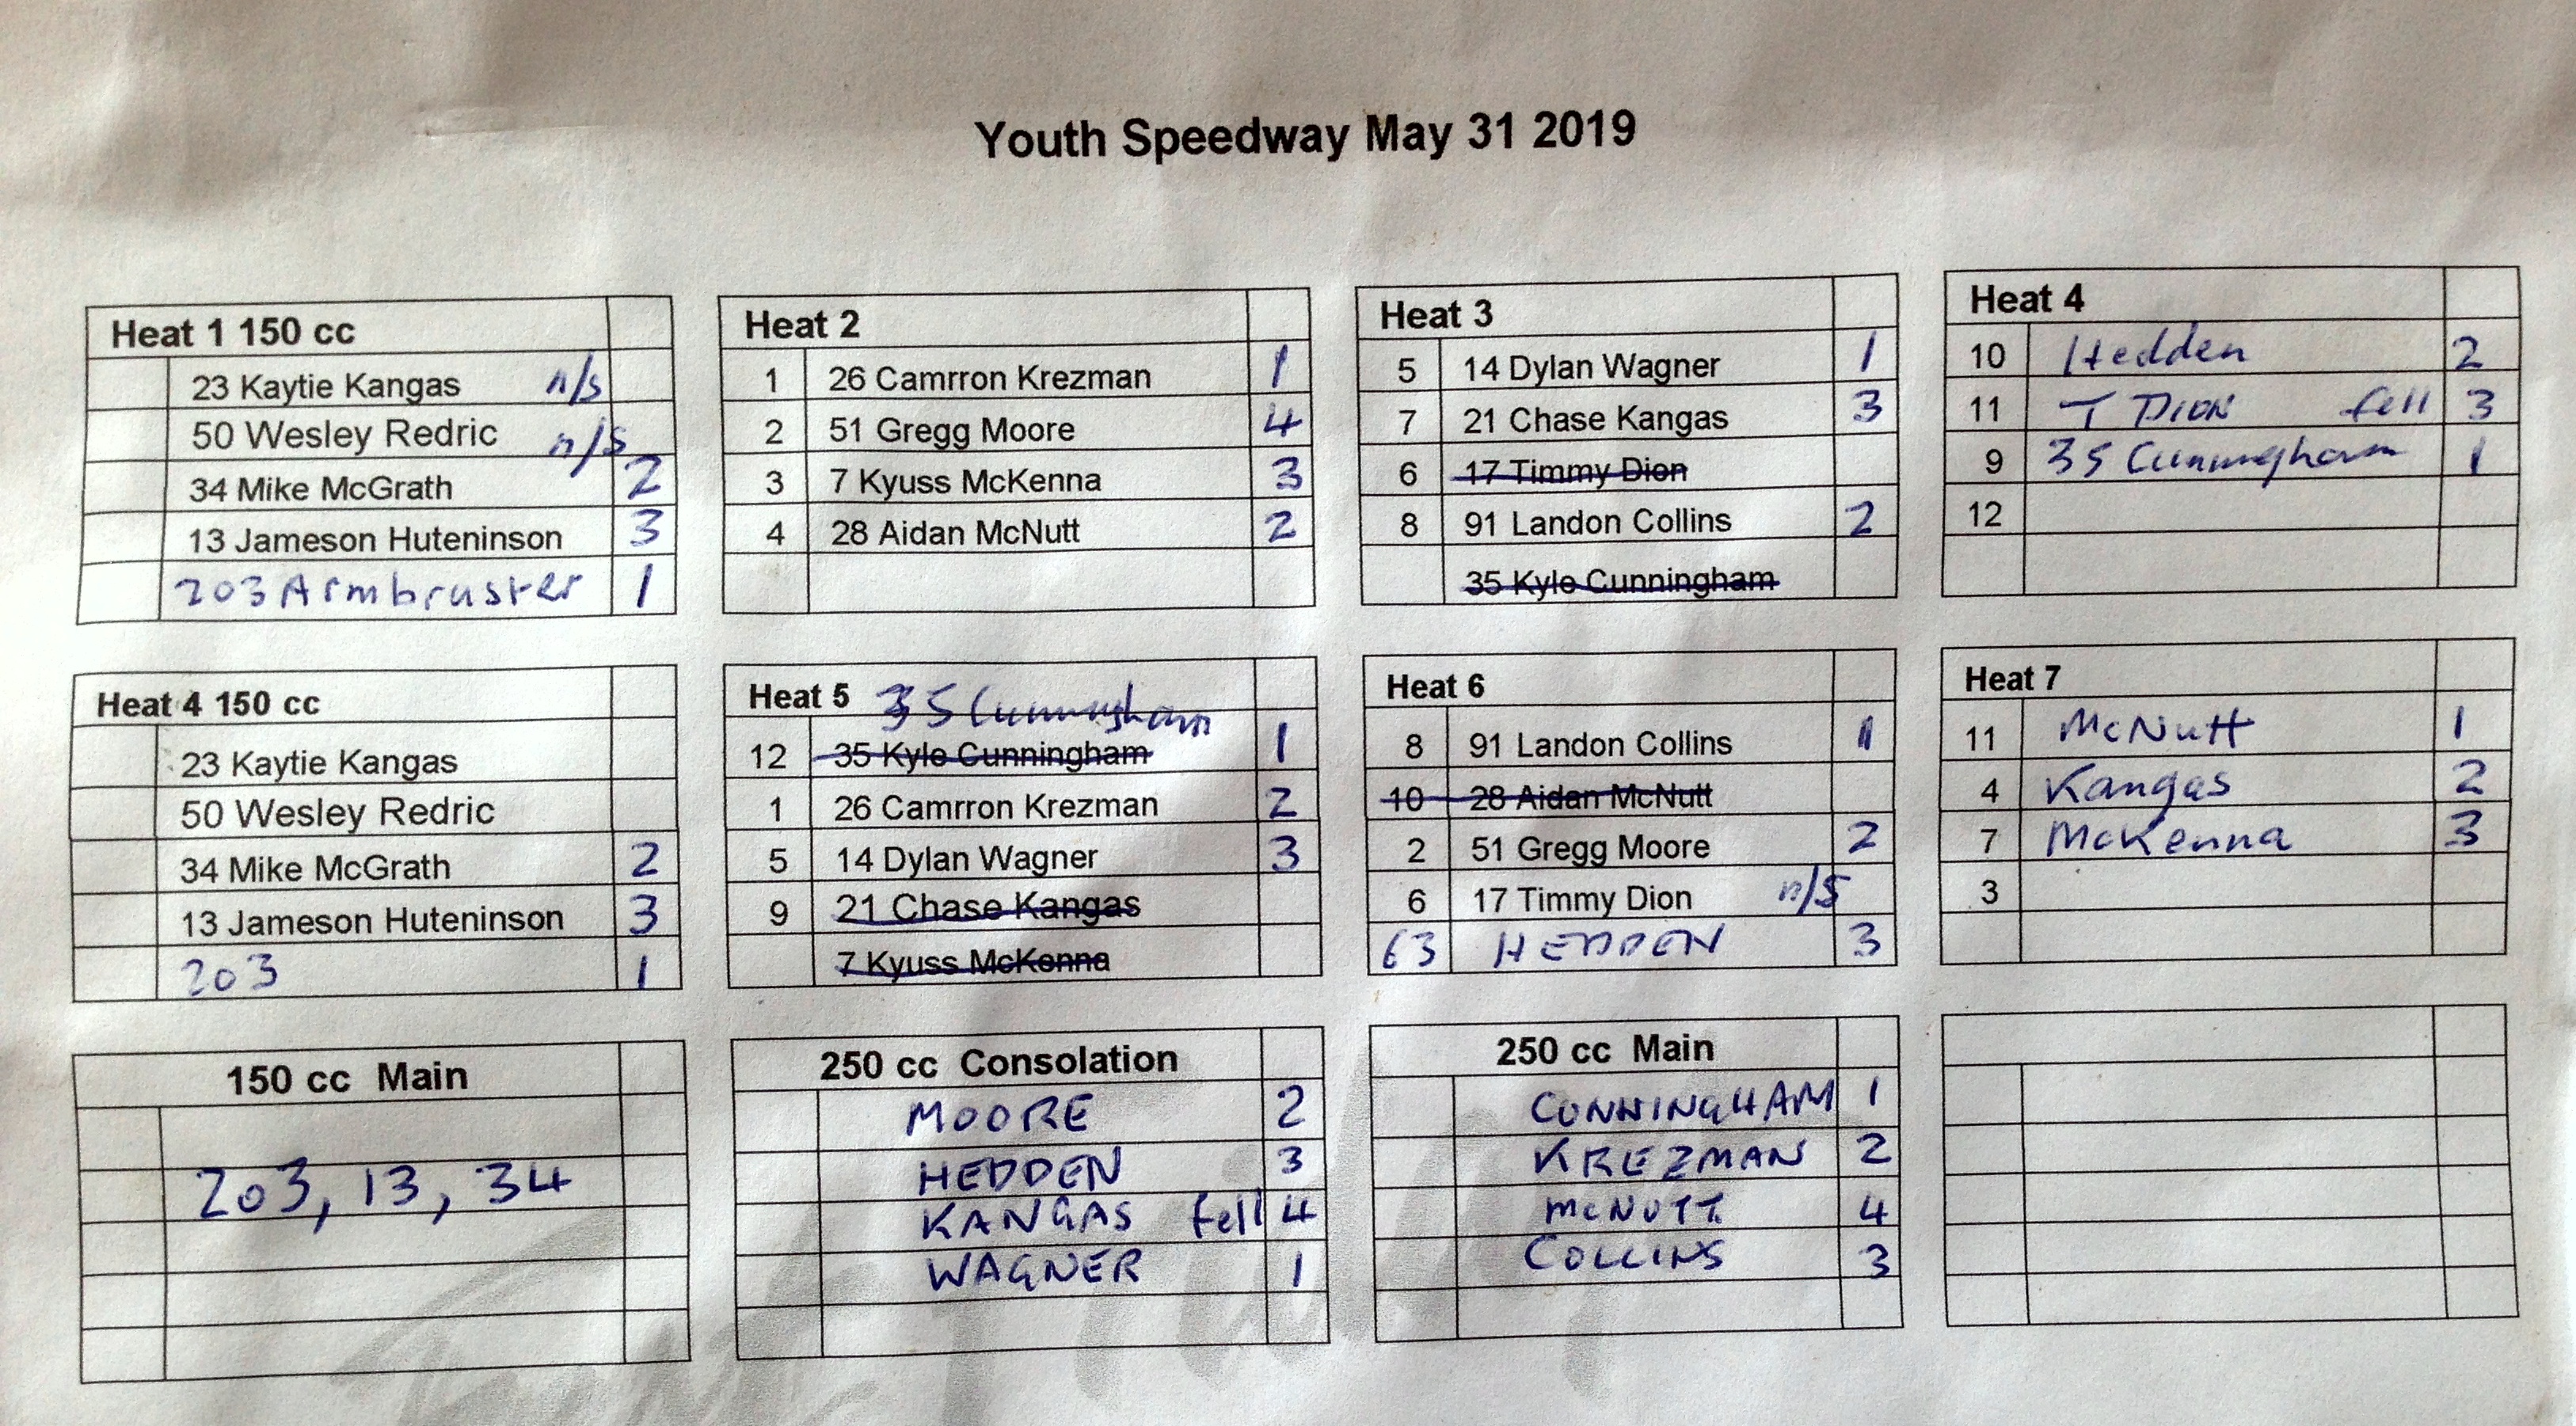 Youth Speedway May 31 2019
Heat 1 150 cc
23 Kaytie Kangas n/s
50 Wesley Redric n/s
34 Mike McGrath 2
13 Jameson Huteninson 3
203 Armbruster 1
Heat 2
1 26 Camrron Krezman 1
2 51 Gregg Moore 4
3 7 Kyuss McKenna 3
4 28 Aidan McNutt 2
Heat 3
5 14 Dylan Wagner 1
7 21 Chase Kangas 3
6 17 Timmy Dion
8 91 Landon Collins 2
35 Kyle Cunningham
Heat 4
10 Hedden 2
11 T DION fell 3
9 35 Cunningham 1
12
Heat 4 150 cc
23 Kaytie Kangas
50 Wesley Redric
34 Mike McGrath 2
13 Jameson Huteninson 3
203 1
Heat 5 35 Cunningham
12 35 Kyle Cunningham 1
1 26 Camrron Krezman 2
5 14 Dylan Wagner 3
9 21 Chase Kangas
7 Kyuss McKenna
Heat 6
8 91 Landon Collins 1
10 28 Aidan McNutt
2 51 Gregg Moore 2
6 17 Timmy Dion n/s
63 HEDDEN 3
Heat 7
11 McNutt 1
4 Kangas 2
7 McKenna 3
3
150 cc Main
203, 13, 34
250 cc Consolation
MOORE 2
HEDDEN 3
KANGAS fell 4
WAGNER 1
250 cc Main
CUNNINGHAM 1
KREZMAN 2
McNUTT 4
COLLINS 3